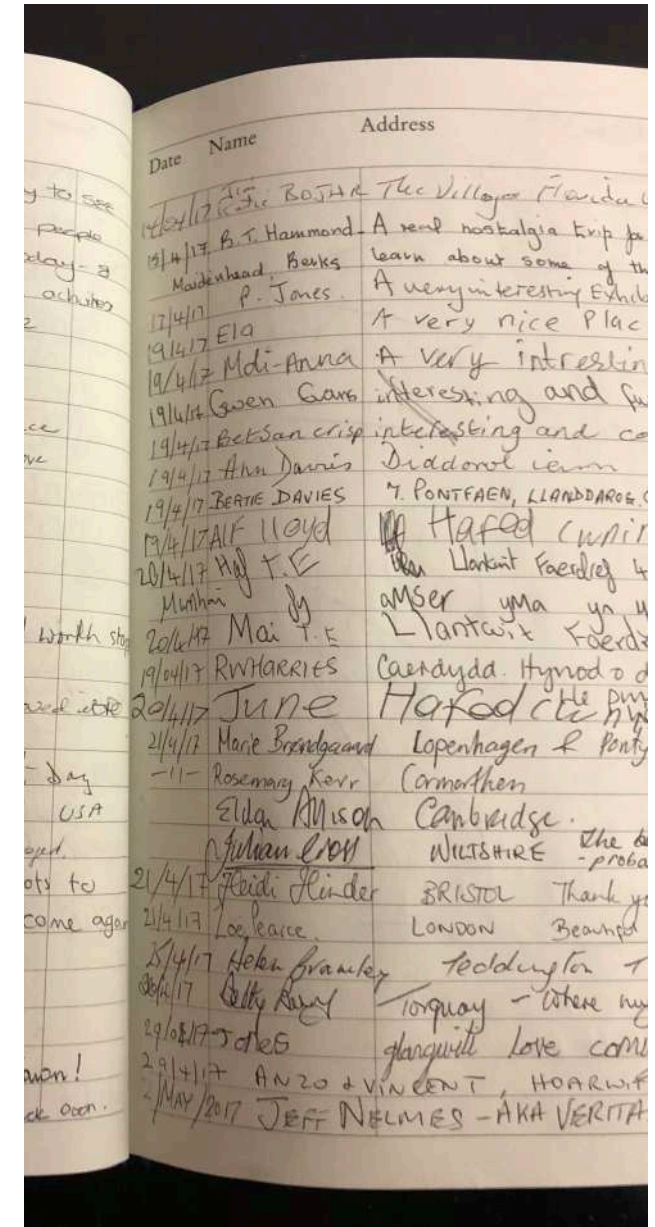 y to see
people
day - a
2
ce
ve
worth stop
Day
USA
ots to
come again
ck soon.
Date Name Address
14/04/17 BOJHR The Villages Florida
15/4/17. B.T. Hammond. A real nostalgia trip
Maidenhead, Berks learn about some of th
17/4/17 P. Jones. A very interesting Exhib
19/4/17 Ela A very nice Plac
19/4/17 Mdi-Anna A very intrestin
19/4/17 Gwen interesting and fu
19/4/17 Betsan crisp interesting and co
19/4/17 Ann Davies Diddorol iawn
19/4/17 BERTIE DAVIES 7. PONTFAEN, LLANDDAROG.
19/4/17 Alf lloyd Hafod Cwnir
20/4/17 Haf T.E Llantwit Faerdref 4
amser yma yn y
20/4/17 Mai T.E Llantwit Faerdr
19/04/17 RWHARRIES Caerdydd. Hynod o d
20/4/17 June Hafod
21/4/17 Marie Brendgaard Copenhagen & Ponty
-11- Rosemary Kerr Carmarthen
Eldon Allison Cambridge.
Julian WILTSHIRE The b
- proba
21/4/17 Heidi Hinder BRISTOL Thank yo
21/4/17 Zoe Pearce. LONDON Beautiful
25/4/17 Helen Bramley Teddington T
Torquay - where my
Jones glangwili love comi
29/4/17 ANZO & VINCENT, HOARWIT
2/MAY/2017 JEFF NELMES - AKA VERITA